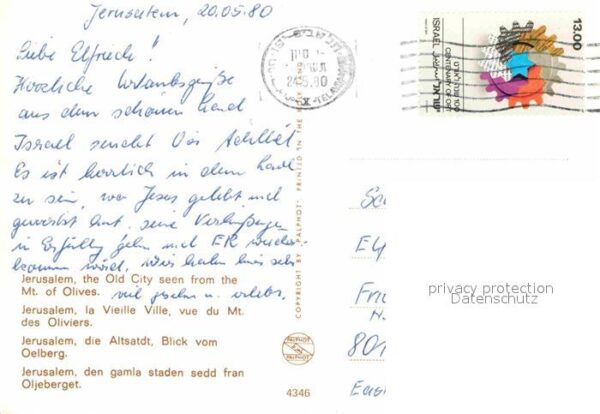 Jerusalem, 20.05.80
Liebe Elfriede!
Herzliche Urlaubsgrüße
aus dem schönen Land
Israel sendet Dir
Es ist herrlich in dem Lande
zu sein, wo Jesus gelebt und
gewirkt hat, seine Verheißungen
in Erfüllung gehn und ER wieder
kommen wird. Wir haben hier sehr
viel gesehn u. erlebt.
Jerusalem, the Old City seen from the
Mt. of Olives.
Jerusalem, la Vieille Ville, vue du Mt.
des Oliviers.
Jerusalem, die Altsatdt, Blick vom
Oelberg.
Jerusalem, den gamla staden sedd fran
Oljeberget.
COPYRIGHT BY "PALPHOT" PRINTED IN THE
PALPHOT
4346
24.5.80
13.00
ISRAEL
CENTENARY OF ORT
privacy protection
Datenschutz
Sc
Ely
Fri
801